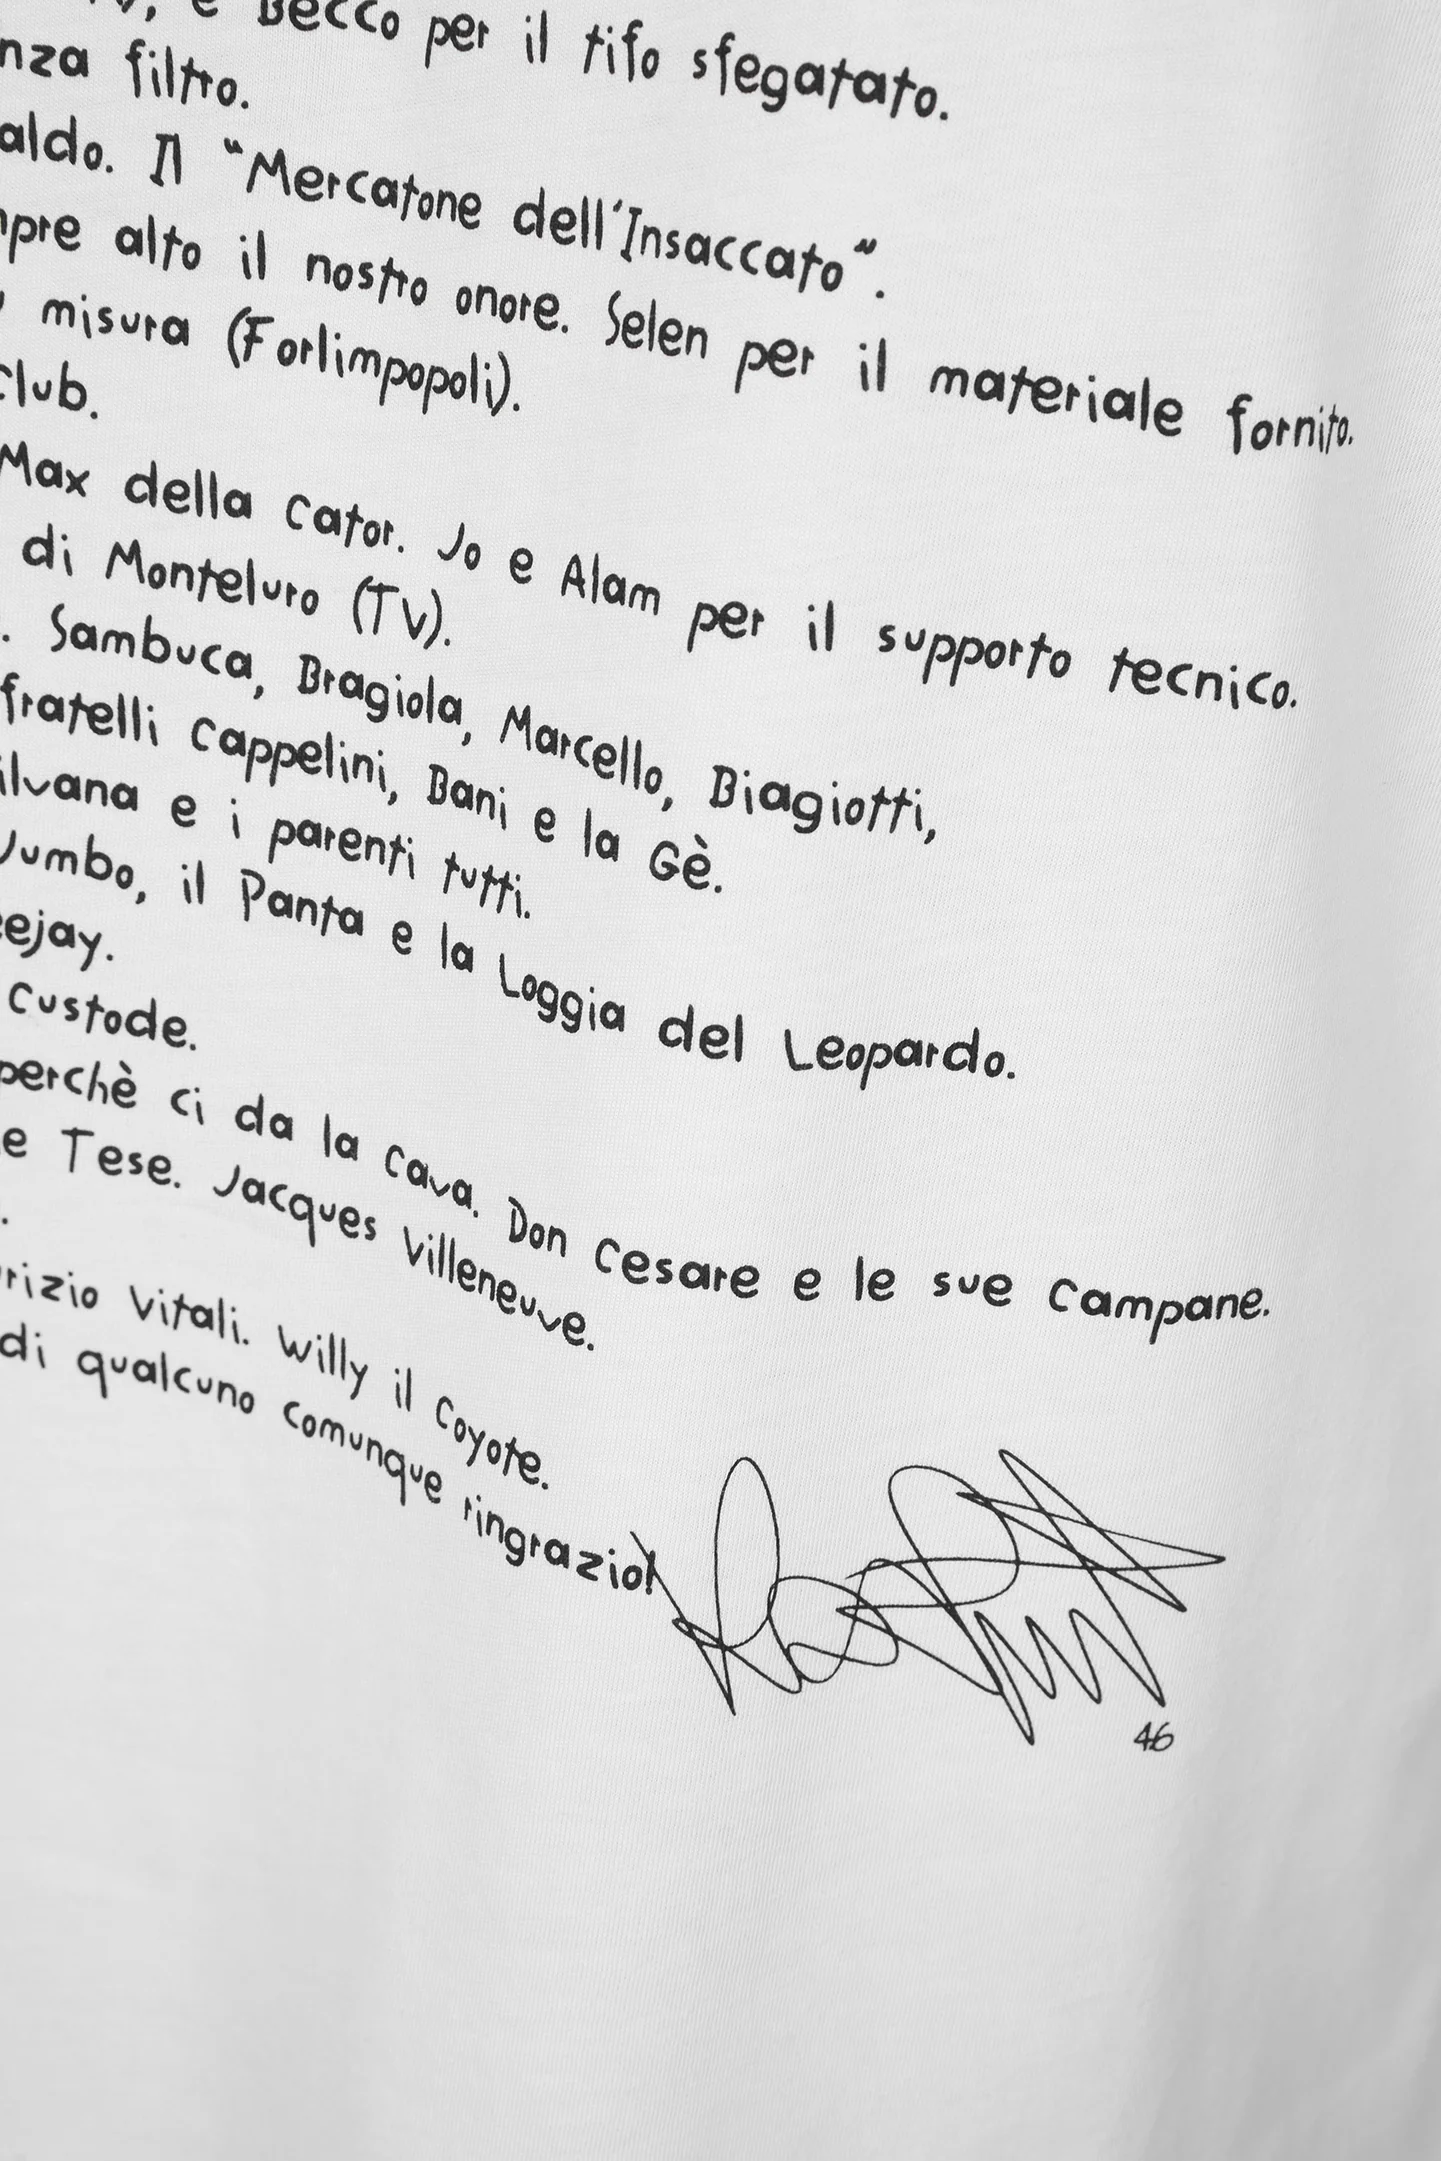 Becco per il tifo sfegatato.
filtro.
Il "Mercatone dell'Insaccato".
alto il nostro onore. Selen per il materiale fornito.
misura (Forlimpopoli).
club.
Max della Cator. Jo e Alam per il supporto tecnico.
di Monteluro (TV).
Sambuca, Bragiola, Marcello, Biagiotti,
fratelli Cappelini, Bani e la Gè.
e i parenti tutti.
Jumbo, il Panta e la Loggia del Leopardo.
eejay.
Custode.
perchè ci da la cava. Don Cesare e le sue Campane.
e Tese. Jacques Villeneuve.
rizio Vitali. Willy il Coyote.
di qualcuno comunque ringrazio!
46